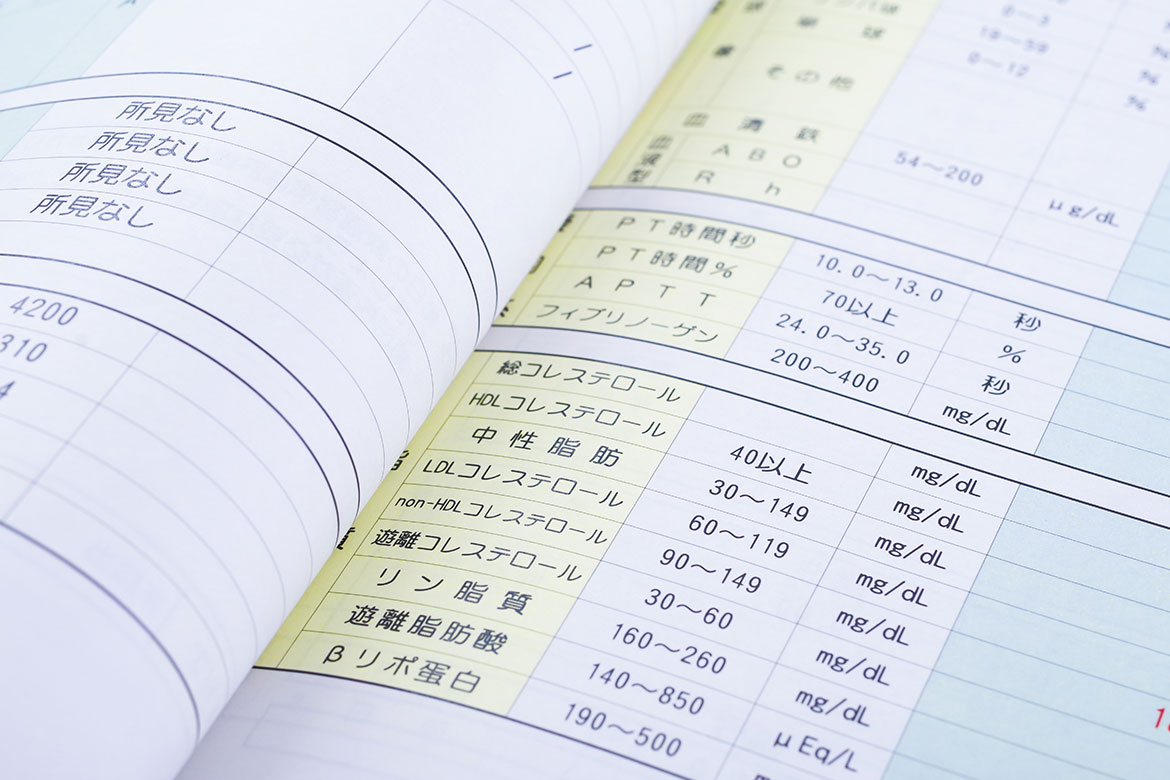 所見なし
所見なし
所見なし
所見なし
4200
310
4
単球 0~12 %
その他
血清鉄 54~200 μg/dL
血液型 ABO
Rh
PT時間秒 10.0~13.0 秒
PT時間% 70以上 %
APTT 24.0~35.0 秒
フィブリノーゲン 200~400 mg/dL
総コレステロール mg/dL
HDLコレステロール 40以上 mg/dL
中性脂肪 30~149 mg/dL
LDLコレステロール 60~119 mg/dL
non-HDLコレステロール 90~149 mg/dL
遊離コレステロール 30~60 mg/dL
リン脂質 160~260 mg/dL
遊離脂肪酸 140~850 μEq/L
βリポ蛋白 190~500